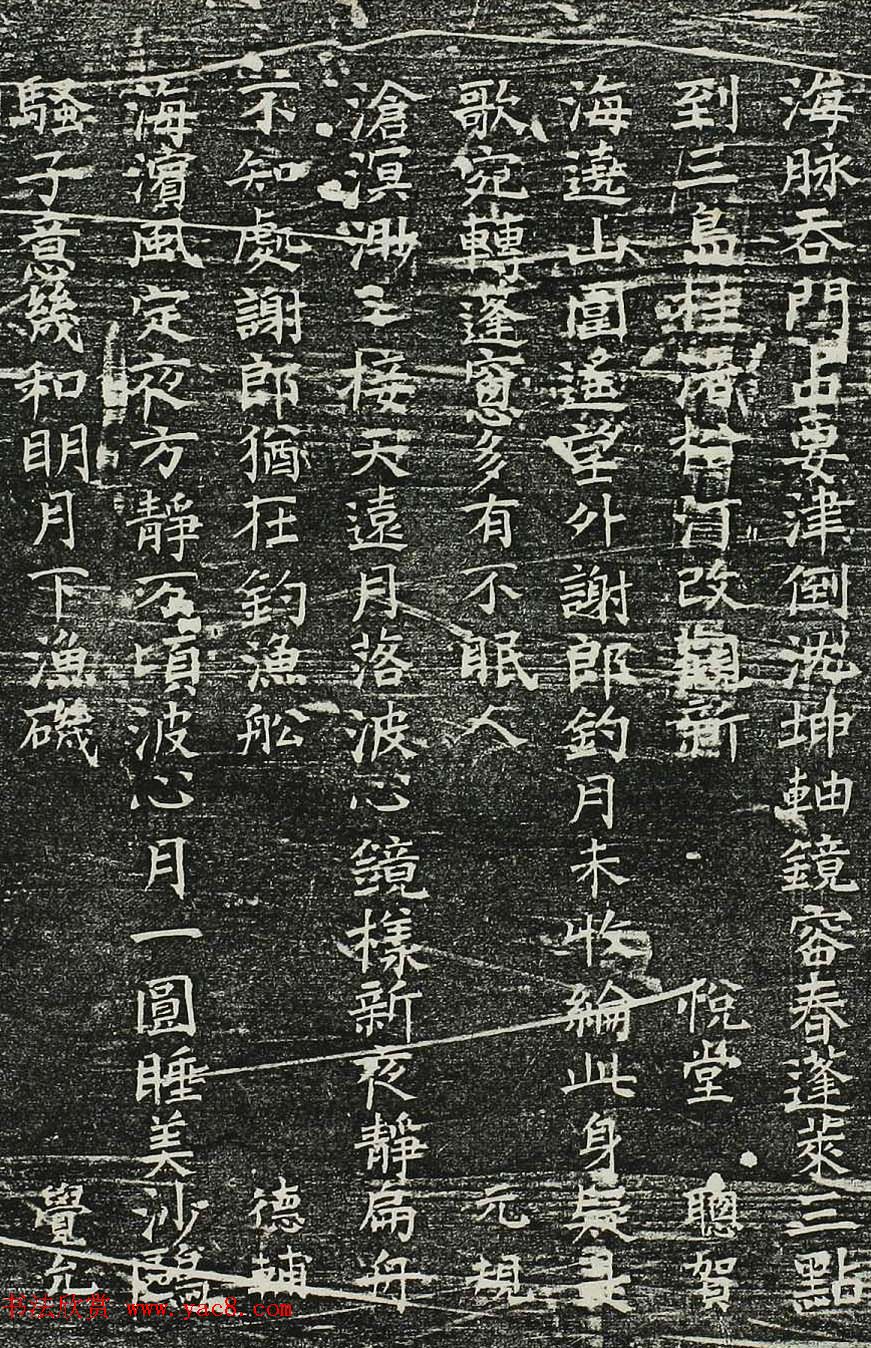 海脉吞門占要津倒沈坤軸鏡奩春蓬萊三點
到三島桂 汀改觀新 悅堂 聰賀
海遶山圍遙望外謝郎釣月未收綸此身疑
歌宛轉蓬窻多有不眠人 元規
滄溟渺〻接天遠月落波心鏡樣新夜静扁舟
不知處謝郎猶在釣漁舩 德輔
海濱風定夜方靜万頃波心月一圓睡美沙鷗
騷子意幾和明月下漁磯 覺允
书法欣赏 www.yac8.com